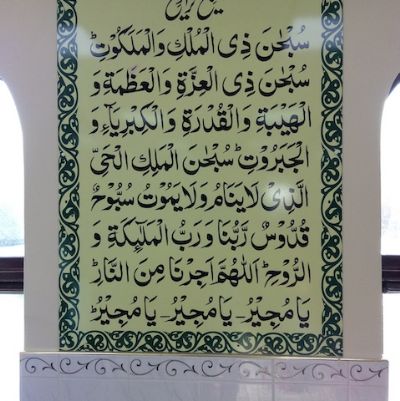 تسبیح تراویح
سُبْحٰنَ ذِی الْمُلْكِ وَالْمَلَكُوْتِؕ
سُبْحٰنَ ذِی الْعِزَّةِ وَالْعَظَمَةِ وَ
الْهَيْبَةِ وَالْقُدْرَةِ وَالْكِبْرِيَآءِ وَ
الْجَبَرُوْتِؕ سُبْحٰنَ الْمَلِكِ الْحَیِّ
الَّذِیْ لَا يَنَامُ وَلَا يَمُوْتُ سُبُّوْحٌ
قُدُّوْسٌ رَّبُّنَا وَ رَبُّ الْمَلٰٓئِكَةِ وَ
الرُّوْحِؕ اَللّٰهُمَّ اَجِرْنَا مِنَ النَّارِؕ
يَا مُجِيْرُ۔ يَا مُجِيْرُ۔ يَا مُجِيْرُؕ